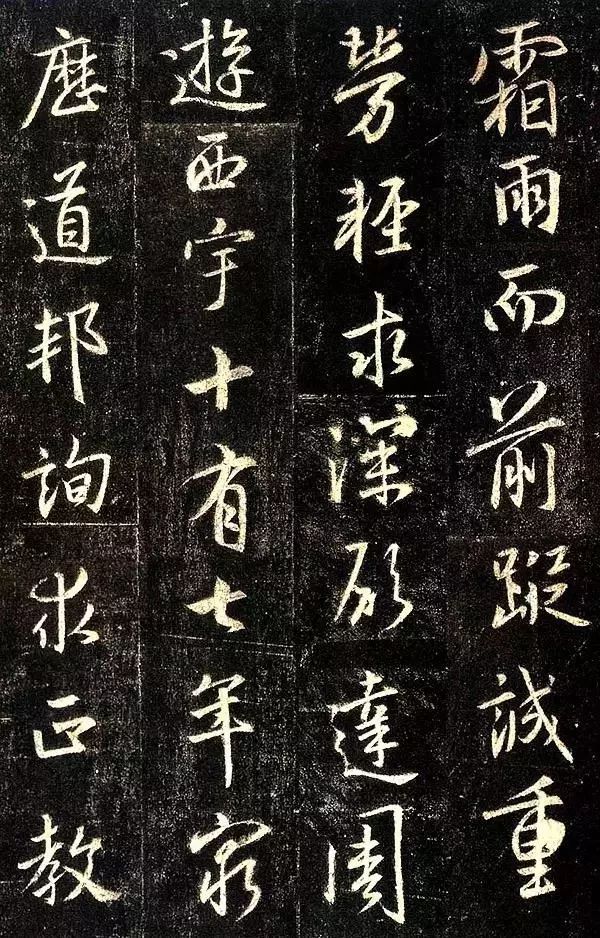 霜雨而前蹤誠重
勞輕求深願達周
遊西宇十有七年窮
歷道邦詢求正教